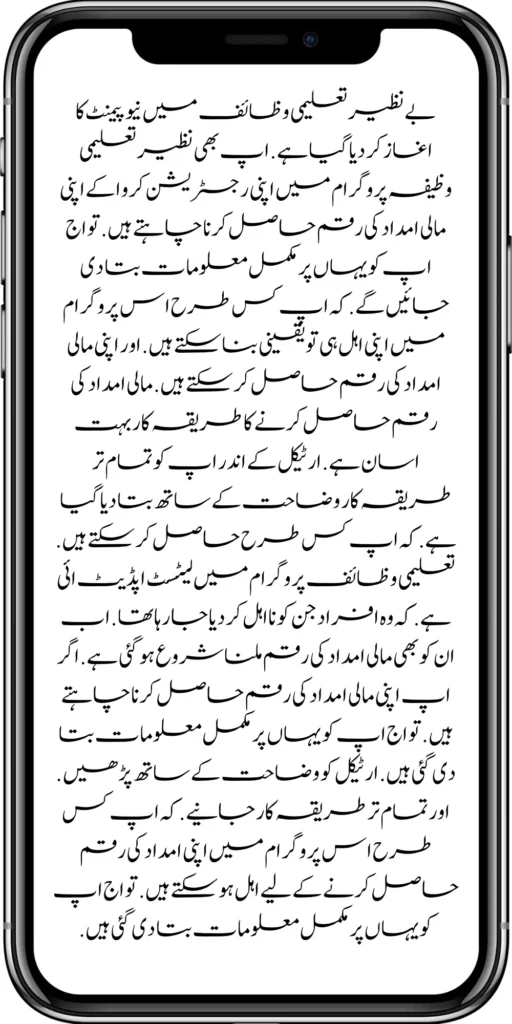 بے نظیر تعلیمی وظائف میں نیو پیمنٹ کا
اغاز کر دیا گیا ہے. اپ بھی نظیر تعلیمی
وظیفہ پروگرام میں اپنی رجسٹریشن کروا کے اپنی
مالی امداد کی رقم حاصل کرنا چاہتے ہیں. تو اج
اپ کو یہاں پر مکمل معلومات بتا دی
جائیں گے. کہ اپ کس طرح اس پروگرام
میں اپنی اہل ہی تو یقینی بنا سکتے ہیں. اور اپنی مالی
امداد کی رقم حاصل کر سکتے ہیں. مالی امداد کی
رقم حاصل کرنے کا طریقہ کار بہت
اسان ہے. ارٹیکل کے اندر اپ کو تمام تر
طریقہ کار وضاحت کے ساتھ بتا دیا گیا
ہے. کہ اپ کس طرح حاصل کر سکتے ہیں.
تعلیمی وظائف پروگرام میں لیٹسٹ اپڈیٹ ائی
ہے. کہ وہ افراد جن کو نااہل کر دیا جا رہا تھا. اب
ان کو بھی مالی امداد کی رقم ملنا شروع ہو گئی ہے. اگر
اپ اپنی مالی امداد کی رقم حاصل کرنا چاہتے
ہیں. تو اج اپ کو یہاں پر مکمل معلومات بتا
دی گئی ہیں. ارٹیکل کو وضاحت کے ساتھ پڑھیں.
اور تمام تر طریقہ کار جانیے. کہ اپ کس
طرح اس پروگرام میں اپنی امداد کی رقم
حاصل کرنے کے لیے اہل ہو سکتے ہیں. تو اج اپ
کو یہاں پر مکمل معلومات بتا دی گئی ہیں.